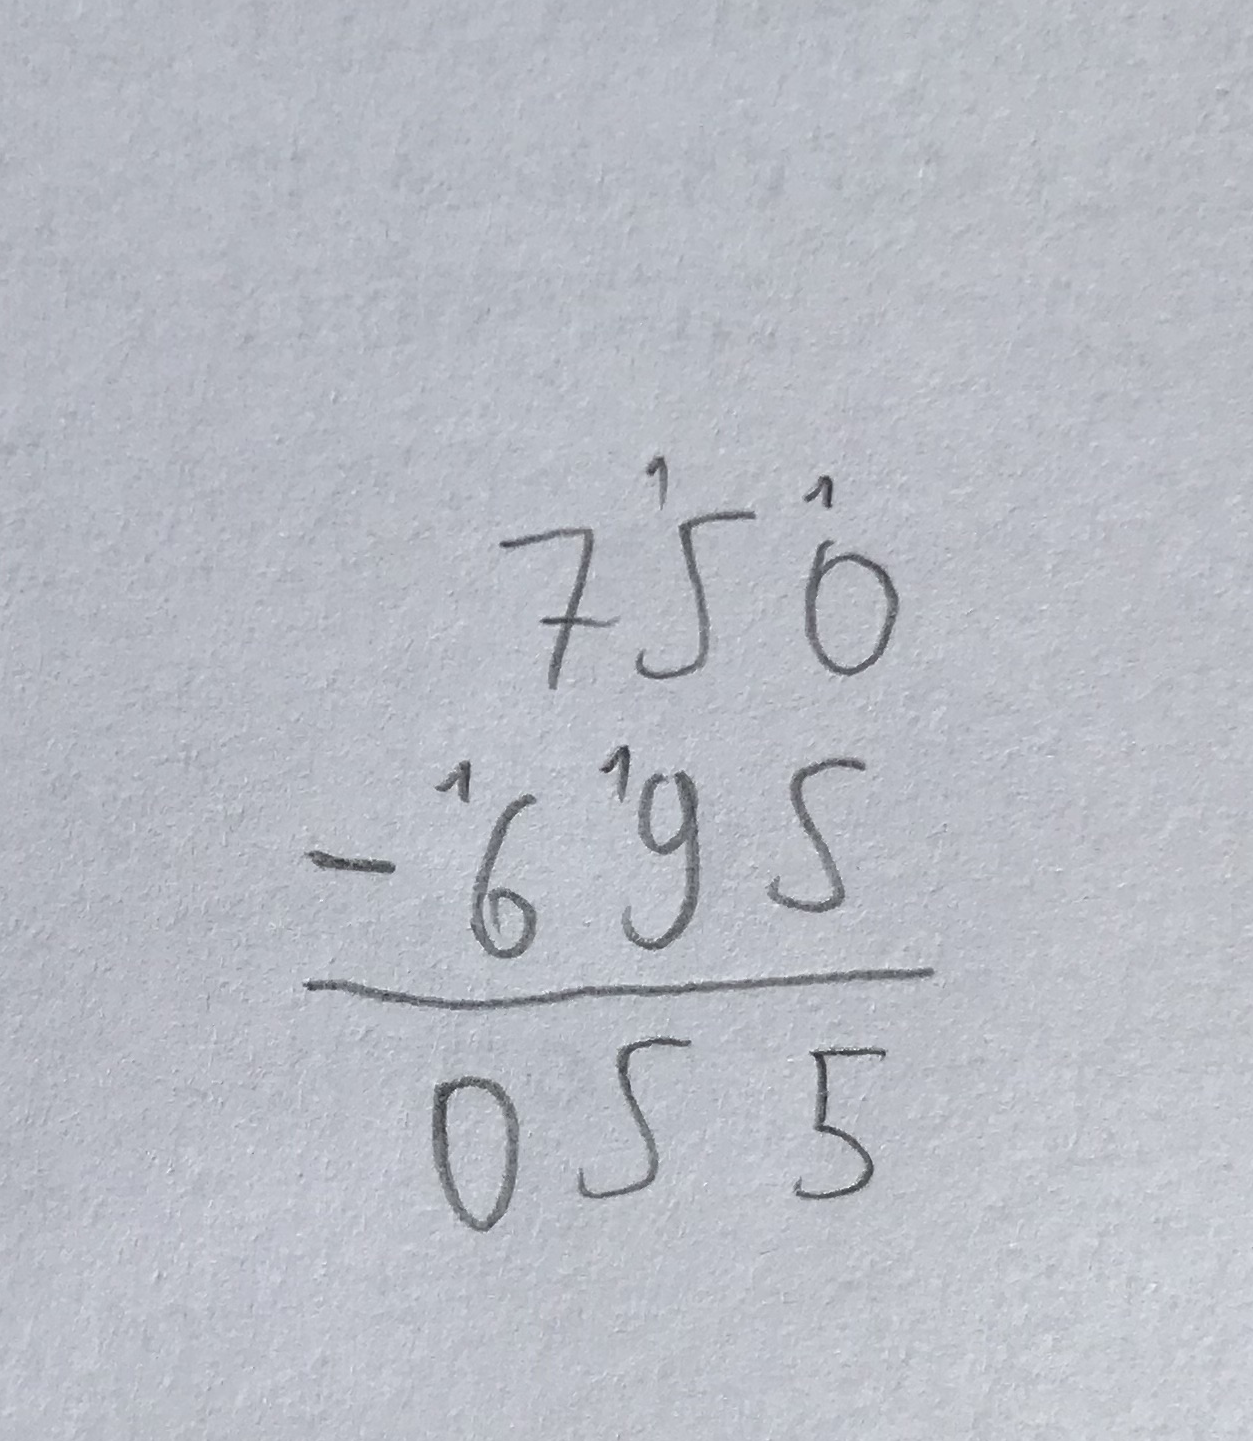 7¹5¹0
- ¹6¹95
055